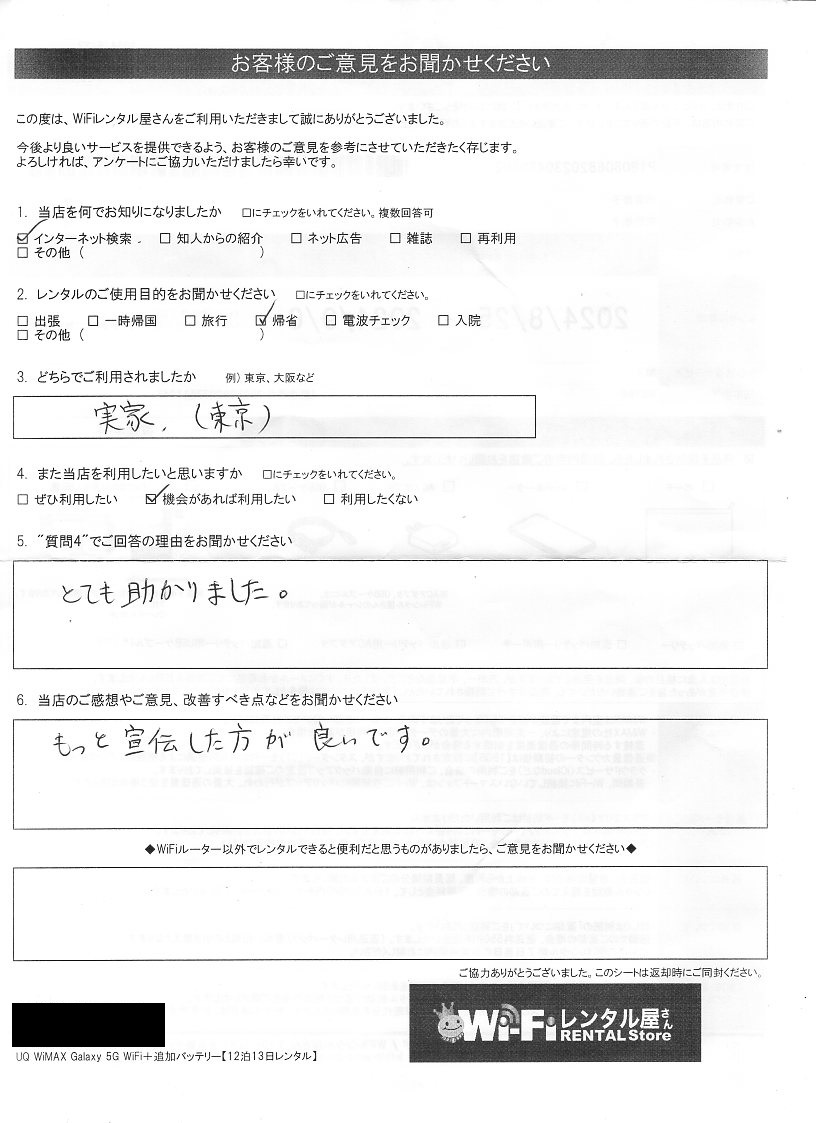 お客様のご意見をお聞かせください
この度は、WiFiレンタル屋さんをご利用いただきまして誠にありがとうございました。
今後より良いサービスを提供できるよう、お客様のご意見を参考にさせていただきたく存じます。
よろしければ、アンケートにご協力いただけましたら幸いです。
1. 当店を何でお知りになりましたか □にチェックをいれてください。複数回答可
☑ インターネット検索 □ 知人からの紹介 □ ネット広告 □ 雑誌 □ 再利用
□ その他 ( )
2. レンタルのご使用目的をお聞かせください □にチェックをいれてください。
□ 出張 □ 一時帰国 □ 旅行 ☑ 帰省 □ 電波チェック □ 入院
□ その他 ( )
3. どちらでご利用されましたか 例) 東京、大阪など
実家. (東京)
4. また当店を利用したいと思いますか □にチェックをいれてください。
□ ぜひ利用したい ☑ 機会があれば利用したい □ 利用したくない
5. "質問4"でご回答の理由をお聞かせください
とても助かりました。
6. 当店のご感想やご意見、改善すべき点などをお聞かせください
もっと宣伝した方が良いです。
◆WiFiルーター以外でレンタルできると便利だと思うものがありましたら、ご意見をお聞かせください◆
ご協力ありがとうございました。このシートは返却時にご同封ください。
Wi-Fiレンタル屋さん
RENTAL Store
UQ WiMAX Galaxy 5G WiFi＋追加バッテリー【12泊13日レンタル】